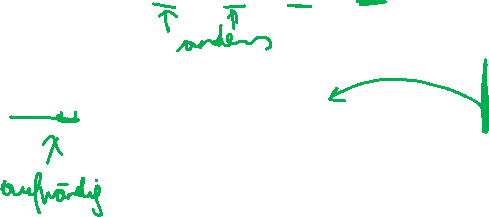 anders
aufwändig